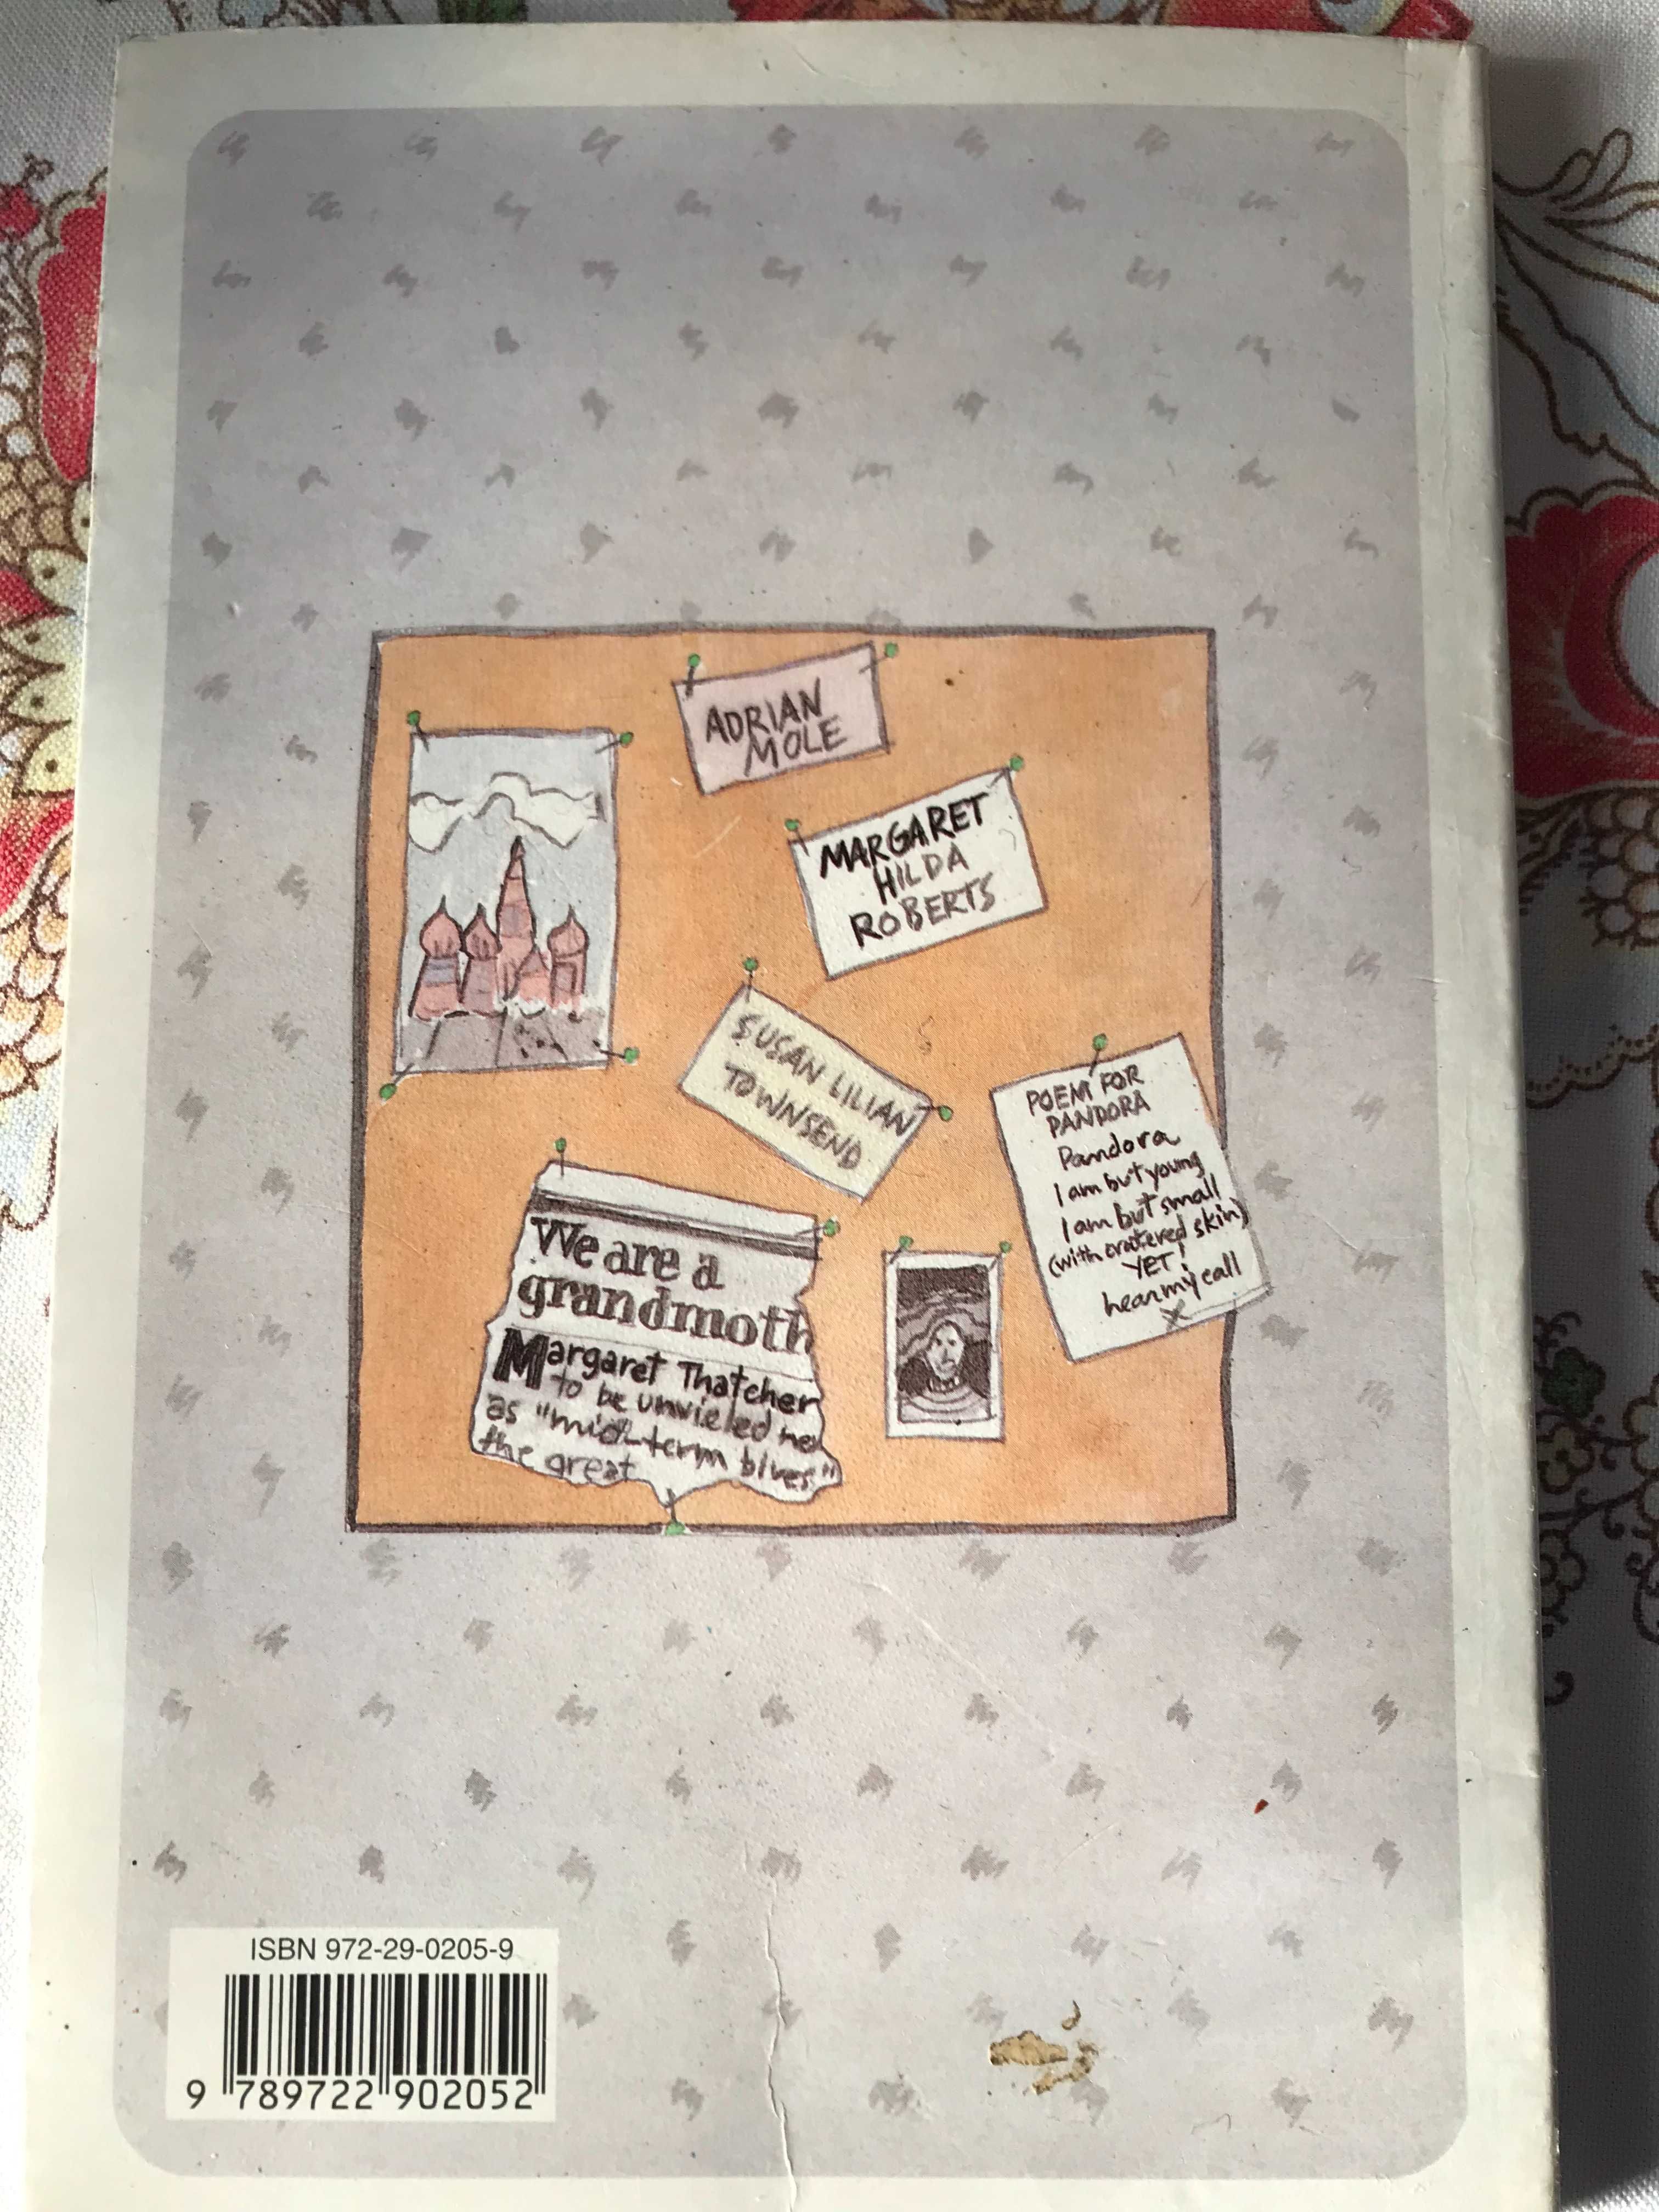 ADRIAN
MOLE
MARGARET
HILDA
ROBERTS
SUSAN LILIAN
TOWNSEND
POEM FOR
PANDORA
Pandora
I am but young
I am but small
(with cratered skin)
YET!
hear my call
X
We are a
grandmoth
Margaret Thatcher
to be unvieled ne
as "mid-term blves"
the great
ISBN 972-29-0205-9
9 789722 902052